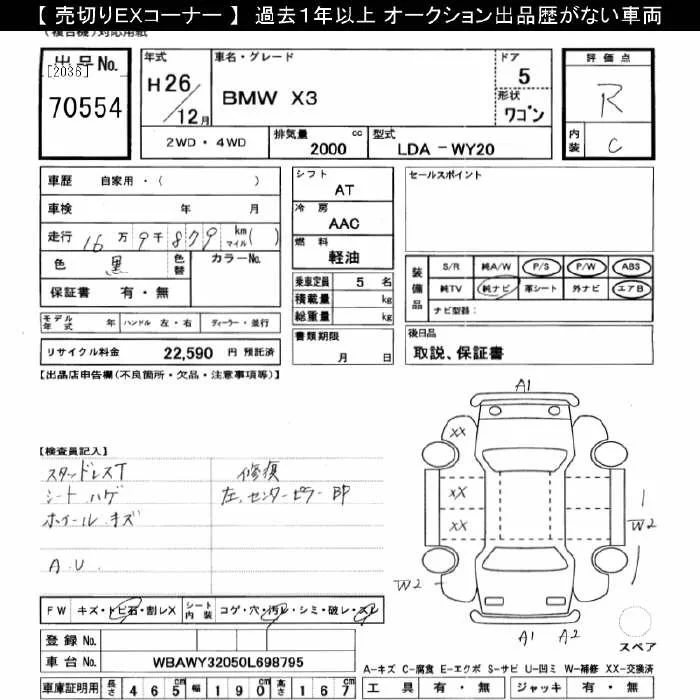 【 売切りEXコーナー 】 過去１年以上 オークション出品歴がない車両
(複合機)対応用紙
出品No. [2036] 70554
年式 H26/12月
車名・グレード BMW X3
ドア 5
形状 ワゴン
評価点 R
内装 C
2WD・4WD
排気量 2000 cc
型式 LDA - WY20
車歴 自家用・( )
車検 年 月
走行 16万9千879 km マイル ( )
色 黒 色替 カラーNo.
保証書 有・無
モデル年式 年 ハンドル 左・右 ディーラー・並行
リサイクル料金 22,590 円 預託済
シフト AT
冷房 AAC
燃料 軽油
乗車定員 5 名
積載量 kg
総重量 kg
書類期限 月 日
セールスポイント
装備品 S/R 純A/W P/S P/W ABS
純TV 純ナビ 革シート 外ナビ エアB
ナビ型器：
後日品
取説、保証書
【出品店申告欄(不良箇所・欠品・注意事項等)】
【検査員記入】
スタッドレスT
シート ハゲ
ホイール キズ
A.U.
修復
左、センターピラー 即
FW キズ・トビ石・割レX シート内装 コゲ・穴・汚レ・シミ・破レ・スレ
登録 No.
車台 No. WBAWY32050L698795
車庫証明用 長さ 465cm 幅 190cm 高さ 167cm
A1
XX
XX
XX
W2
W2
A1 A2
スペア
A-キズ C-腐食 E-エクボ S-サビ U-凹ミ W-補修 XX-交換済
工具 有・無 ジャッキ 有・無